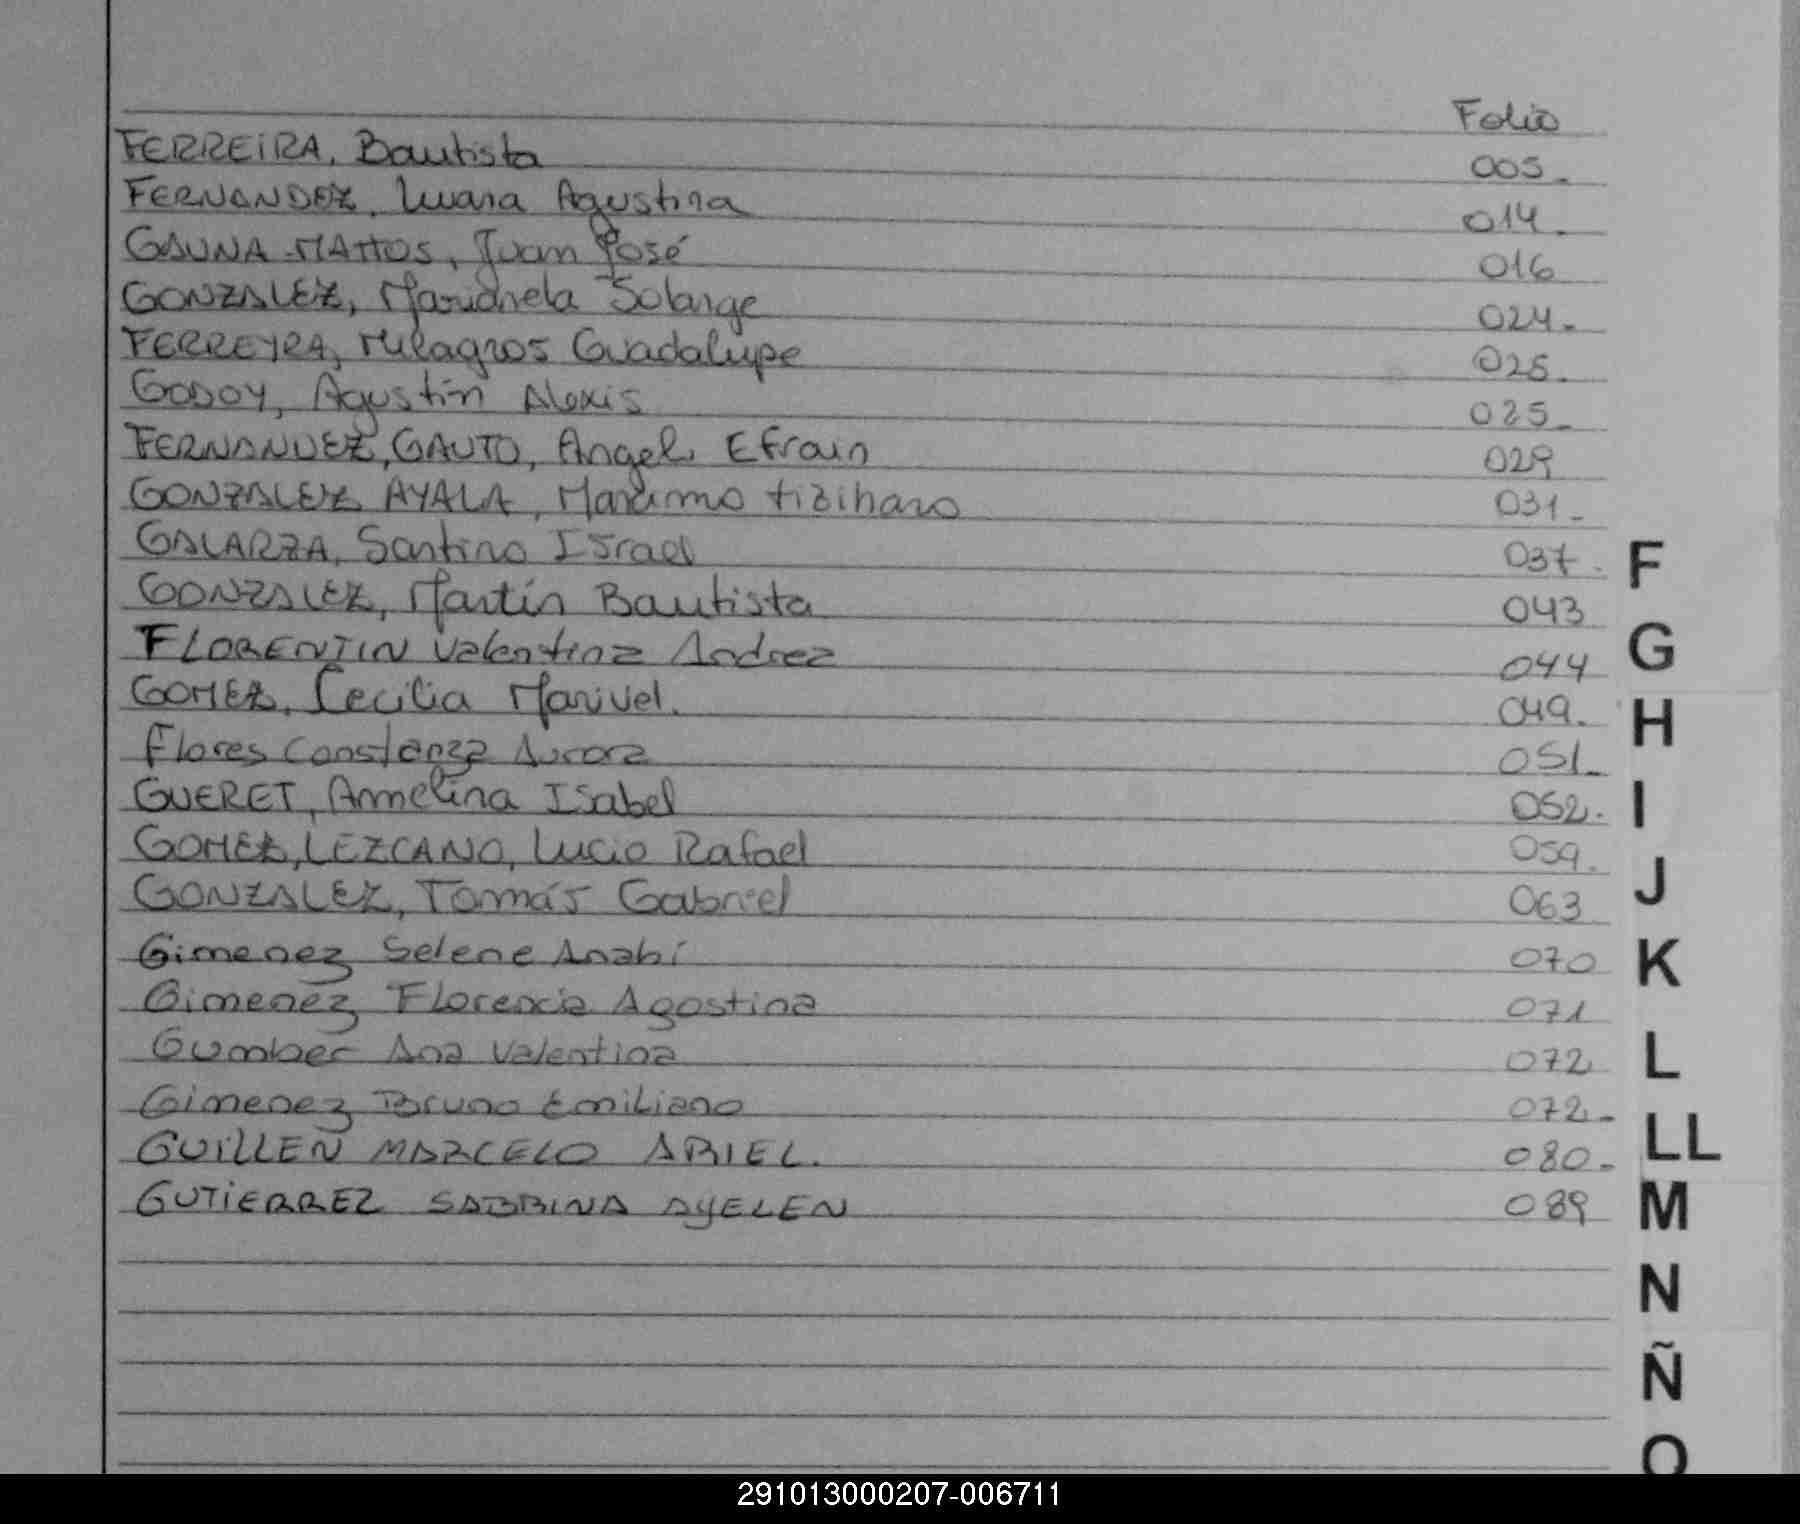 Folio
FERREIRA, Bautista 005.
FERNANDEZ, Luana Agustina 014.
GAUNA MATTOS, Juan José 016
GONZALEZ, Marianela Solange 024.
FERREYRA, Milagros Guadalupe 025.
GODOY, Agustín Alexis 025.
FERNANDEZ, GAUTO, Angel Efrain 029
GONZALEZ AYALA, Maximo tizihano 031.
GALARZA, Santino Israel 037.
GONZALEZ, Martín Bautista 043
FLORENTIN Valentina Andrea 044
GOMEZ, Cecilia Marivel. 049.
Flores Constanza Aurora 051.
GUERET, Annelina Isabel 052.
GOMEZ, LEZCANO, Lucio Rafael 059.
GONZALEZ, Tomás Gabriel 063
Gimenez Selene Anahí 070
Gimenez Florencia Agostina 071
Gumber Ana Valentina 072
Gimenez Bruno Emiliano 072.
GUILLEN MARCELO ARIEL. 080.
GUTIERREZ SABRINA AYELEN 089
F
G
H
I
J
K
L
LL
M
N
Ñ
O
291013000207-006711